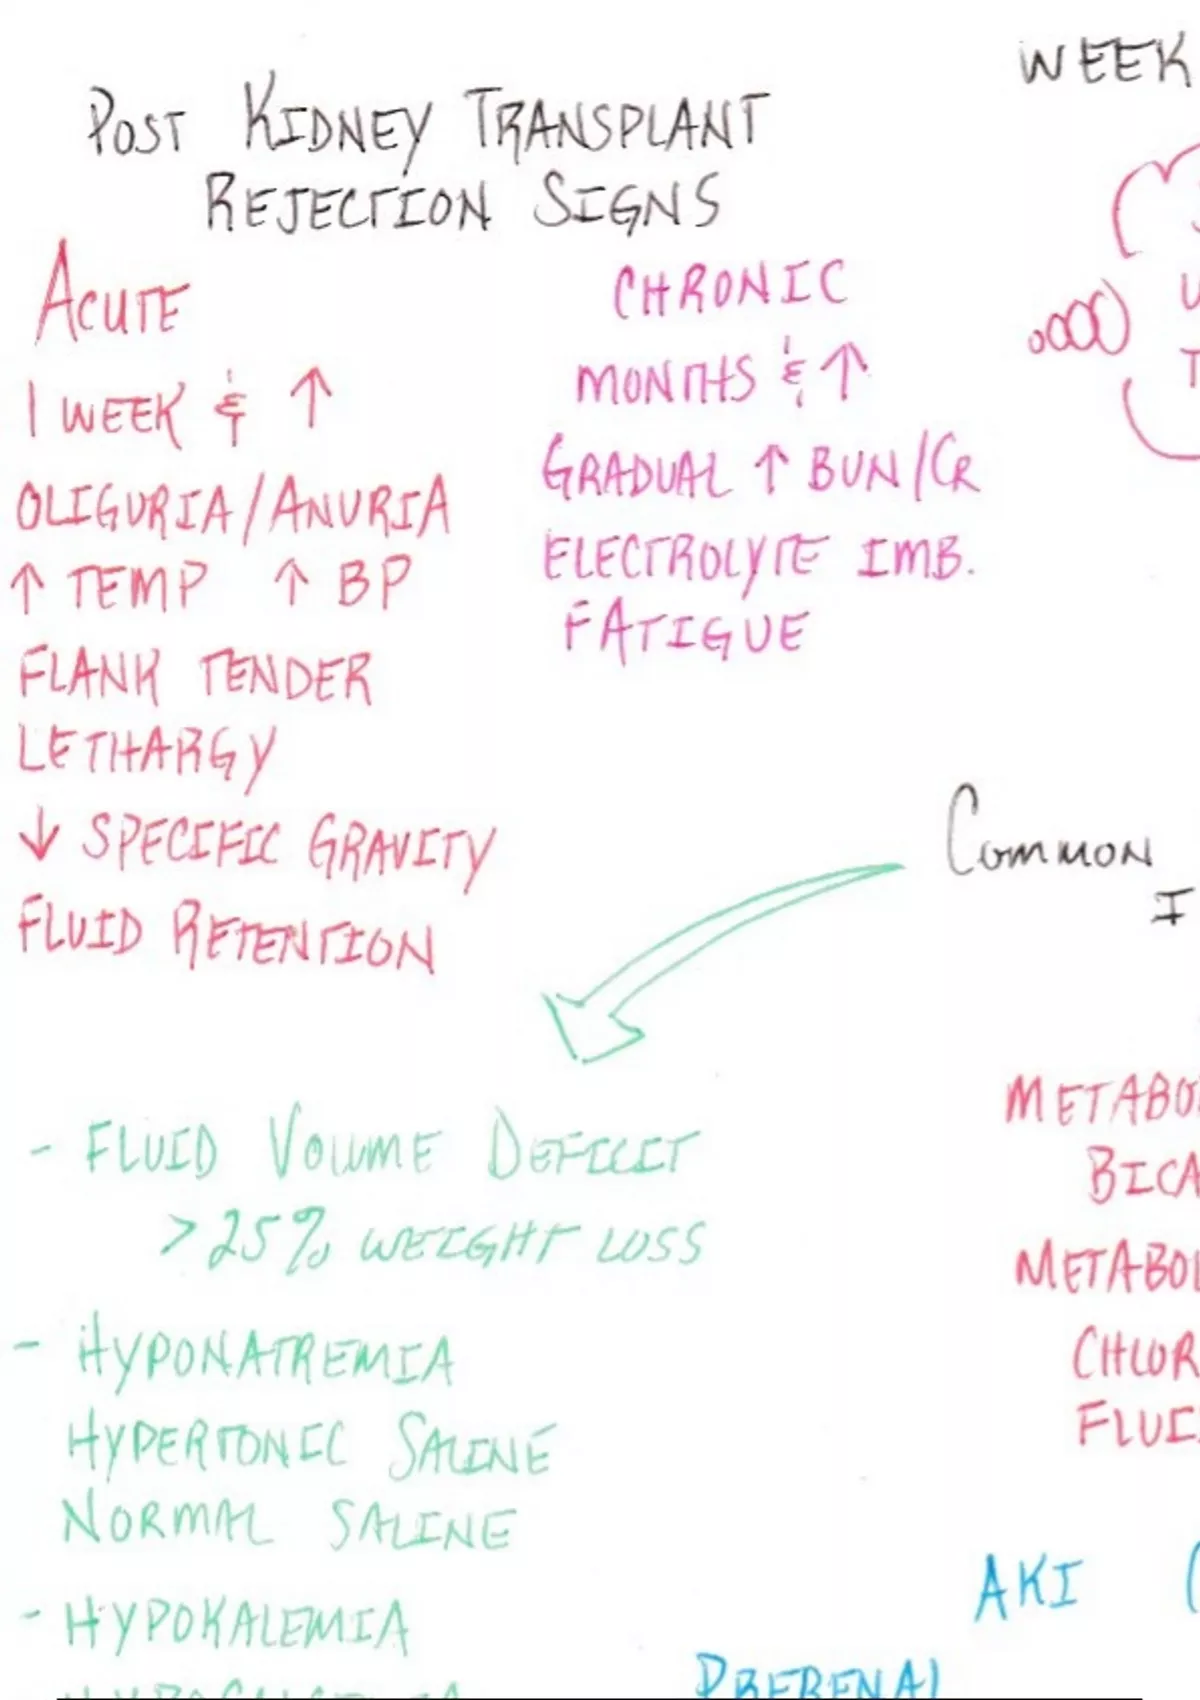 WEEK
POST KIDNEY TRANSPLANT
REJECTION SIGNS
ACUTE
1 WEEK & ↑
OLIGURIA/ANURIA
↑ TEMP ↑ BP
FLANK TENDER
LETHARGY
↓ SPECIFIC GRAVITY
FLUID RETENTION
CHRONIC
MONTHS & ↑
GRADUAL ↑ BUN/CR
ELECTROLYTE IMB.
FATIGUE
COMMON
- FLUID VOLUME DEFICIT
>25% WEIGHT LOSS
- HYPONATREMIA
HYPERTONIC SALINE
NORMAL SALINE
- HYPOKALEMIA
METABO
BICA
METABOL
CHLOR
FLUI
AKI (
PRERENAL